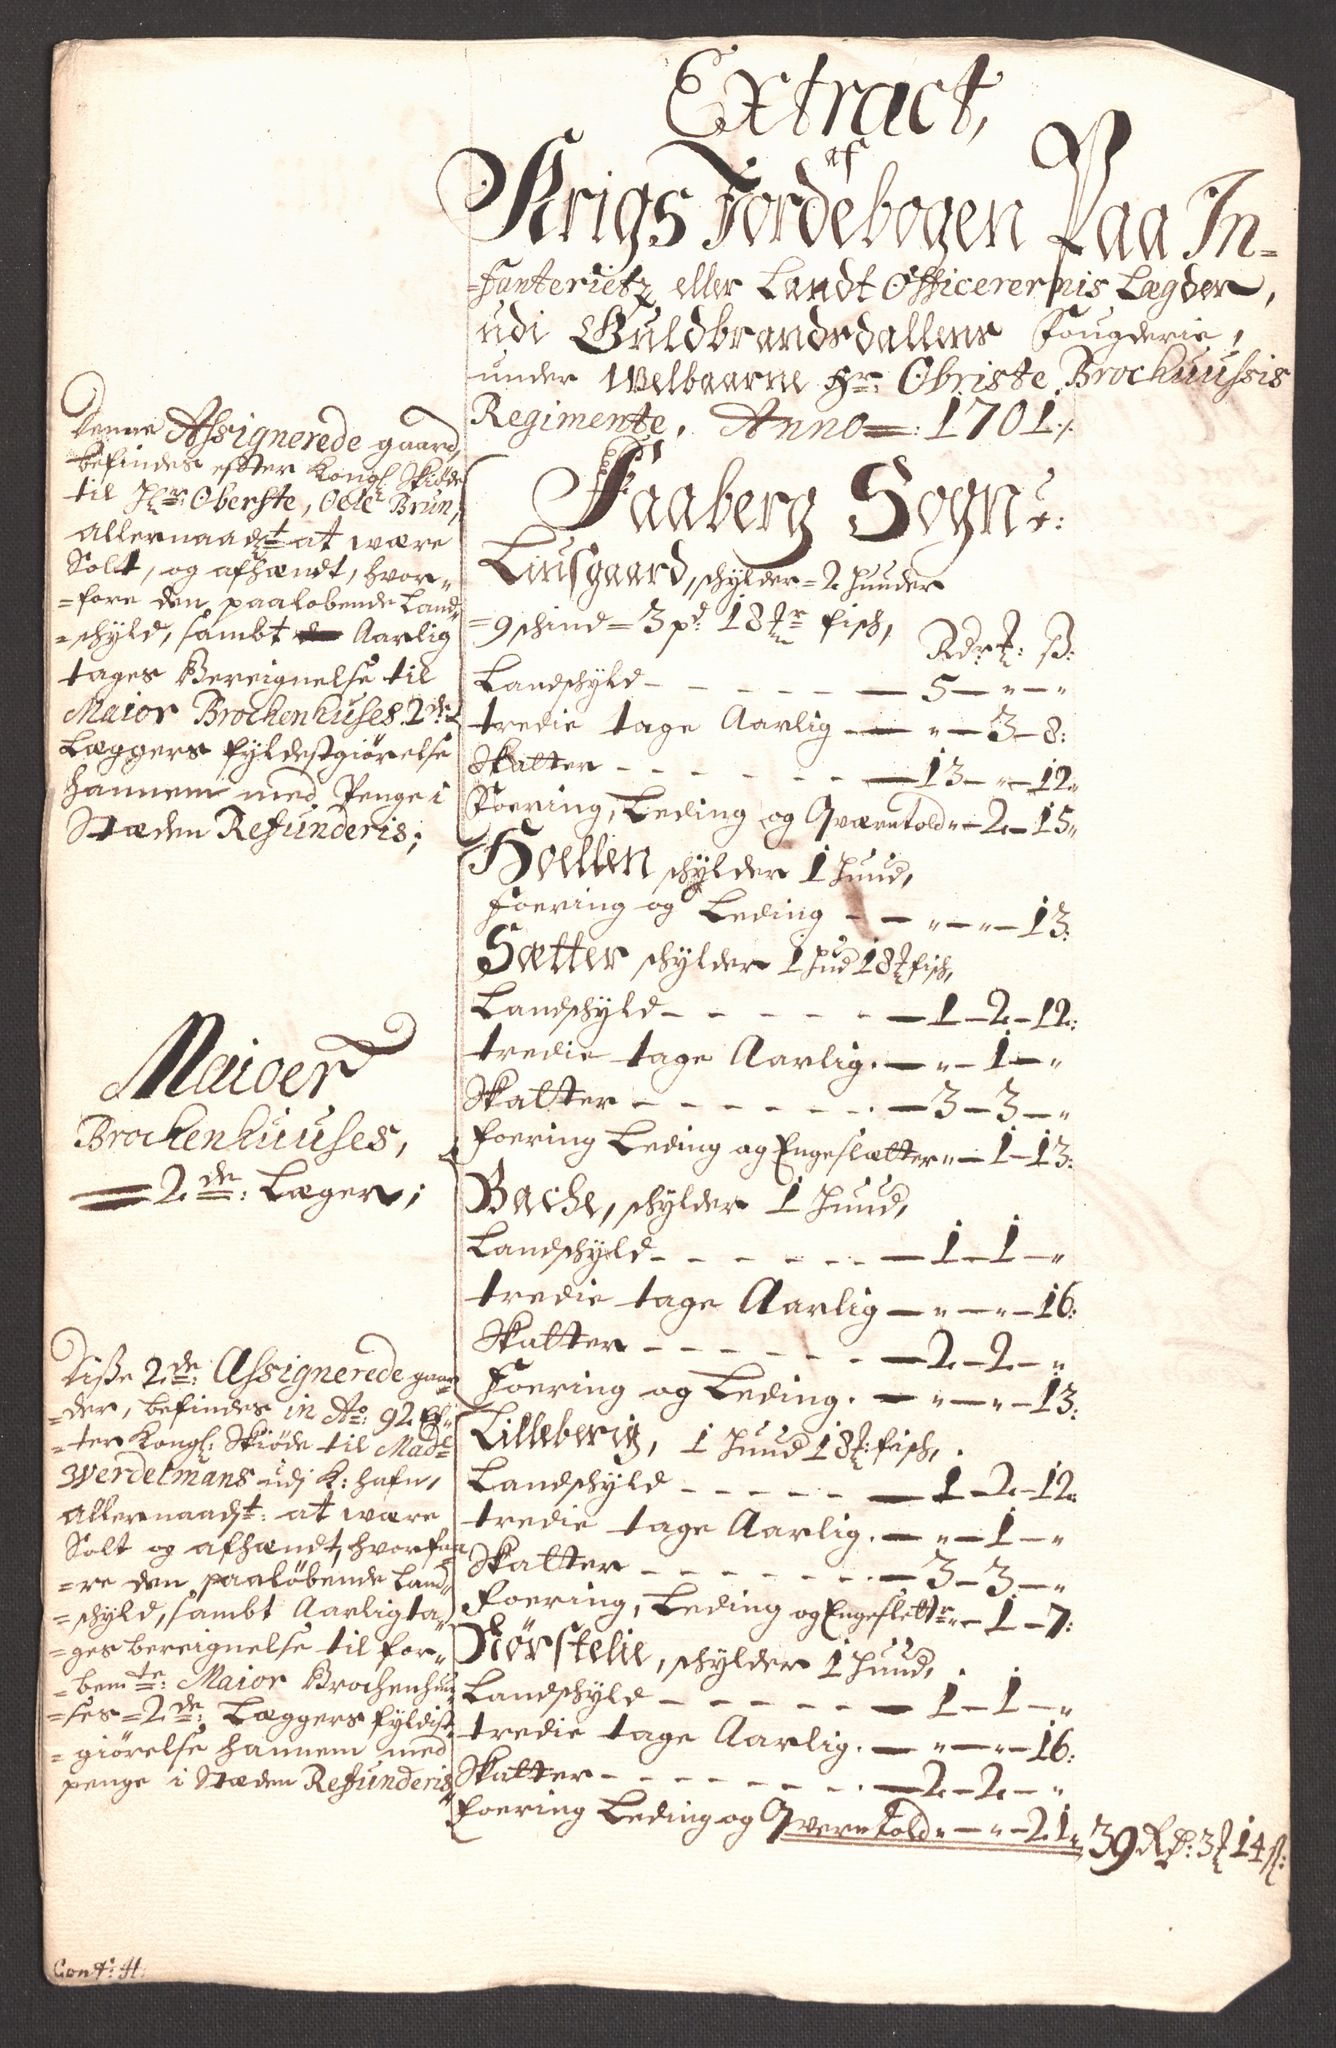 Extract,
af
Krigs Jordebogen Paa In-
-fanterietz eller Landt Officerernis Lægder,
udi Guldbrandsdallens Fougderie,
under Welbaarne Hr: Obriste Brochuusis
Regimente, Anno 1701
Faaberg Sogn:
Liusgaard, schylder 2 huuder
9 schind 3 pd 18 fisch,
Rdr: : ß:
Landschyld 5 " "
tredie tage Aarlig " 3 8:
Skatter 13 " 12
Foering, Leding og Qværntold " 2 15
Hoellen schylder 1 huud,
Foering og Leding " " 13:
Sætter schylder 1 hud 18 fisch,
Landschyld 1 2 12:
tredie tage Aarlig " 1 "
Skatter 3 3 "
foering Leding og Engeslætter " 1 13:
Bache, schylder 1 huud,
Landschyld 1 1 "
tredie tage Aarlig " " 16:
Skatter 2 2 "
Foering og Leding " " 13:
Lilleberig, 1 huud 18 fisch,
Landschyld 1 2 12
tredie tage Aarlig " 1 "
Skatter 3 3 "
foering, Leding og Engeslettr " 1 7:
Rørstelie, schylder 1 huud,
Landschyld 1 1 "
tredie tage Aarlig " " 16:
Skatter 2 2 "
foering Leding og Qverntold " " 21 39 Rd: 3 14 ß:
Denne Assignerede gaard,
befindes efter Kongl: Skiøde
til Hr: Oberste, Oele Brun,
allernaadt at wære
Solt, og afhændt, hvor-
-fore den paaløbende Land-
-schyld, sambt Aarlig
tages Bereignelse til
Maior Brochenhuses 2de
Læggers fyldestgiørelse
hannem med Penge i
Stæden Refunderis;
Maioer
Brochenhuuses,
2de: Læger;
Diße 2de: Assignerede gaar-
-der, befindes in Ao: 92 Ef-
-ter Kongl: Skiøde til Madl
Werdelmans udj K:hafn,
allernaadt: at wære
Solt og afhændt, hvorfaa
-re den paaløbende Land-
-schyld, sambt Aarlig ta-
-ges bereignelse til for-
-bemte: Maior Brochenhuu-
-ses 2de: Læggers fyldist-
-giørelse hannem med
penge i Stæden Refunderis